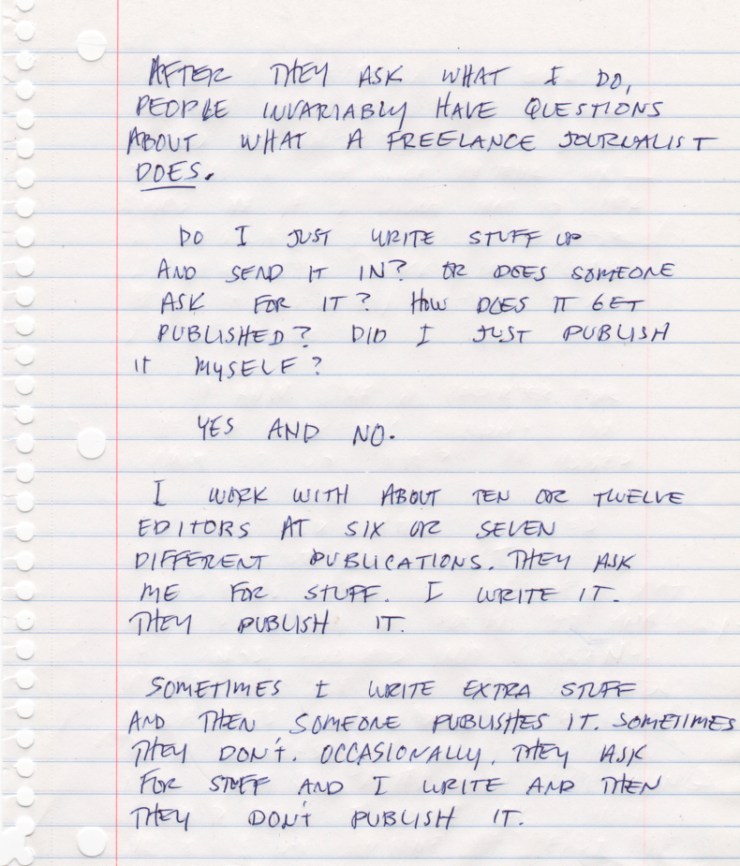 AFTER THEY ASK WHAT I DO,
PEOPLE INVARIABLY HAVE QUESTIONS
ABOUT WHAT A FREELANCE JOURNALIST
DOES.
DO I JUST WRITE STUFF UP
AND SEND IT IN? OR DOES SOMEONE
ASK FOR IT? HOW DOES IT GET
PUBLISHED? DID I JUST PUBLISH
IT MYSELF?
YES AND NO.
I WORK WITH ABOUT TEN OR TWELVE
EDITORS AT SIX OR SEVEN
DIFFERENT PUBLICATIONS. THEY ASK
ME FOR STUFF. I WRITE IT.
THEY PUBLISH IT.
SOMETIMES I WRITE EXTRA STUFF
AND THEN SOMEONE PUBLISHES IT. SOMETIMES
THEY DON'T. OCCASIONALLY, THEY ASK
FOR STUFF AND I WRITE AND THEN
THEY DON'T PUBLISH IT.